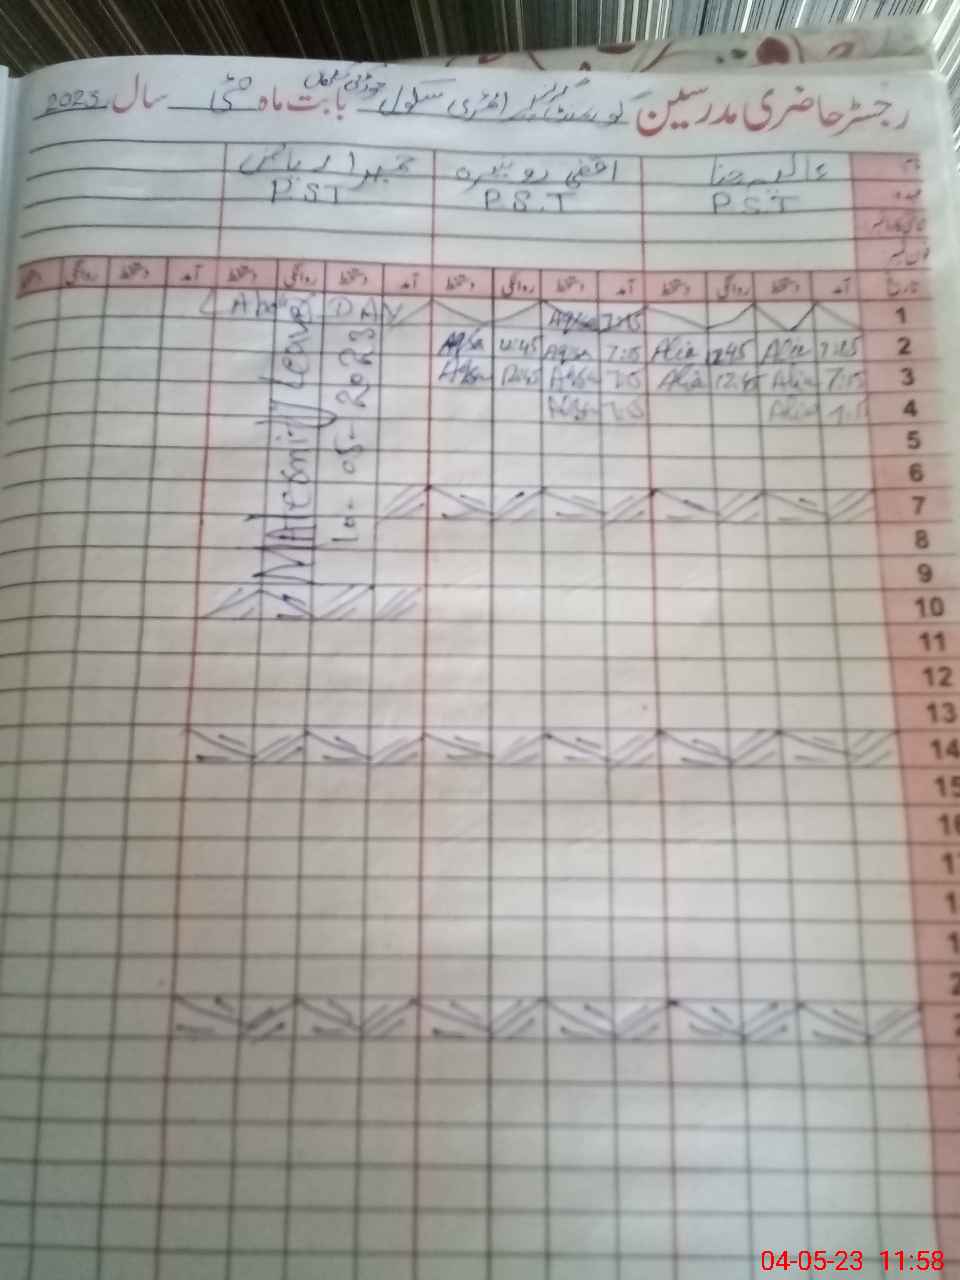 رجسٹر حاضری مدرسین گورنمنٹ گرلز پرائمری سکول بابت ماہ مئی سال 2023
نام عالیہ حنا اقصٰی روبینہ
عہدہ P.S.T P.S.T P.S.T
فون نمبر
تاریخ آمد دستخط روانگی دستخط آمد دستخط روانگی دستخط آمد دستخط روانگی دستخط آمد دستخط روانگی دستخط
1 7:15 Aqsa DAY
2 7:15 Alia 12:45 Alia 7:15 Aqsa 12:45 Aqsa
3 7:15 Alia 12:45 Alia 7:15 Aqsa 12:45 Aqsa
4 7:15 Alia 7:15 Aqsa
Leave
10-05-2023
5
6
7
8
9
10
11
12
13
14
15
16
04-05-23 11:58